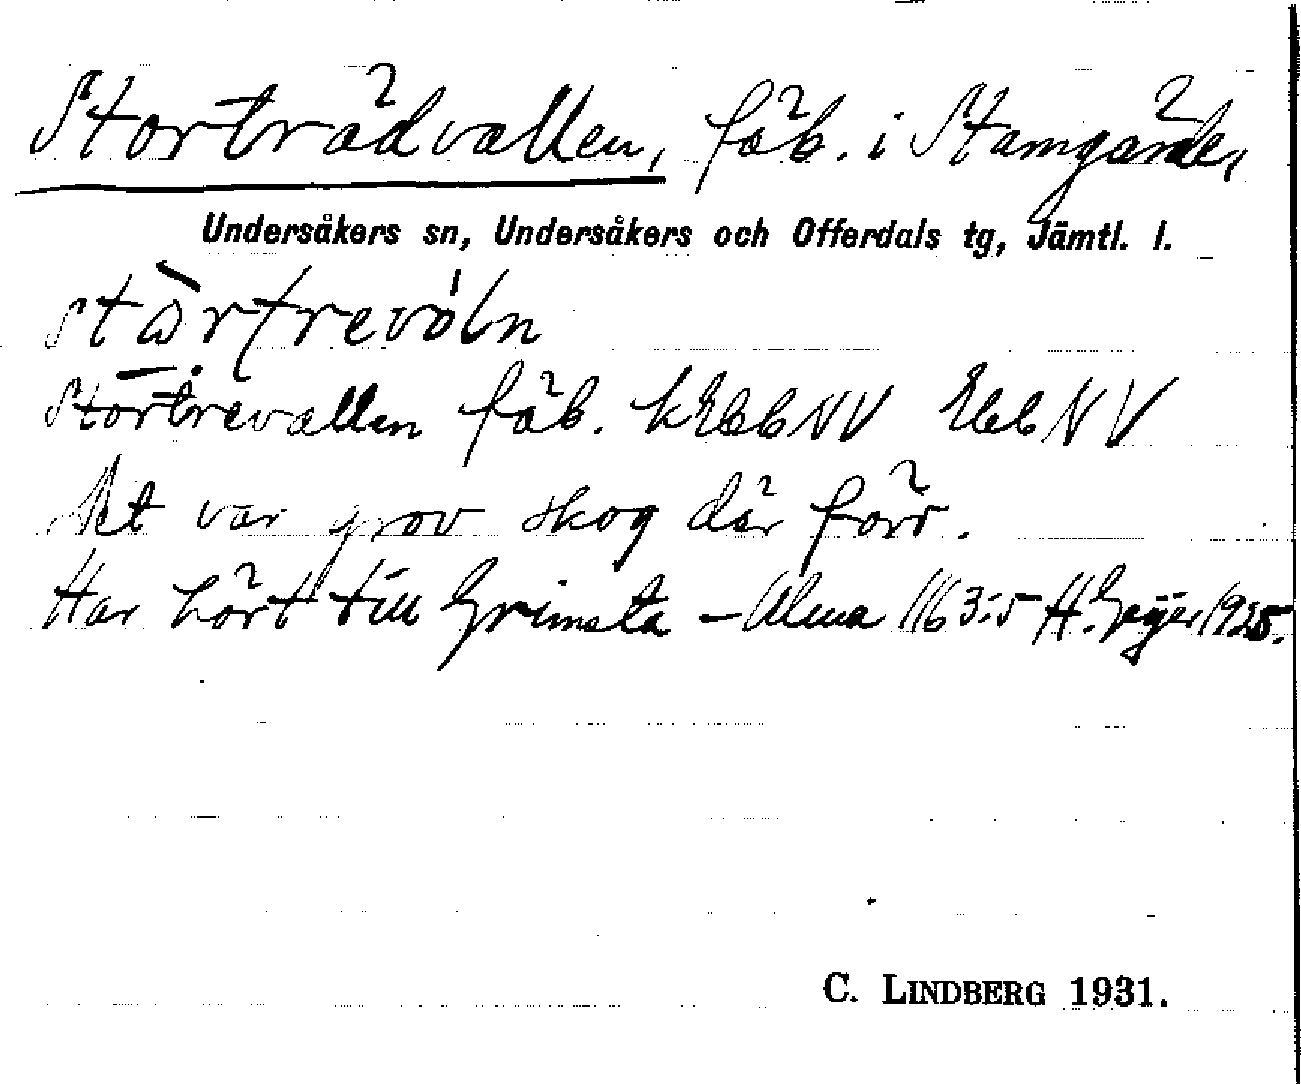 Storträdvallen, fäb. i Stamgärde,
Undersåkers sn, Undersåkers och Offerdals tg, Jämtl. l.
Stortrevallen fäb. kEbbNV EbbNV
Det var grov skog där förr.
Har hört till Grimsta – Alma 1163:5 H. Geijer 1925.
C. LINDBERG 1931.